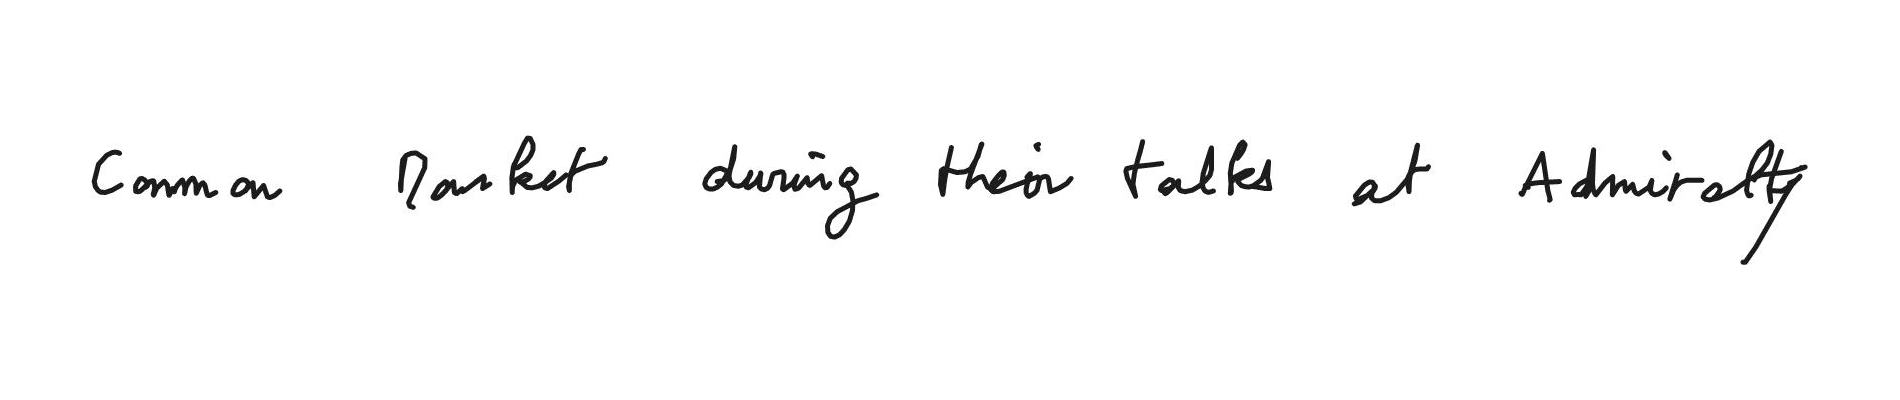 Common Market during their talks at Admiralty